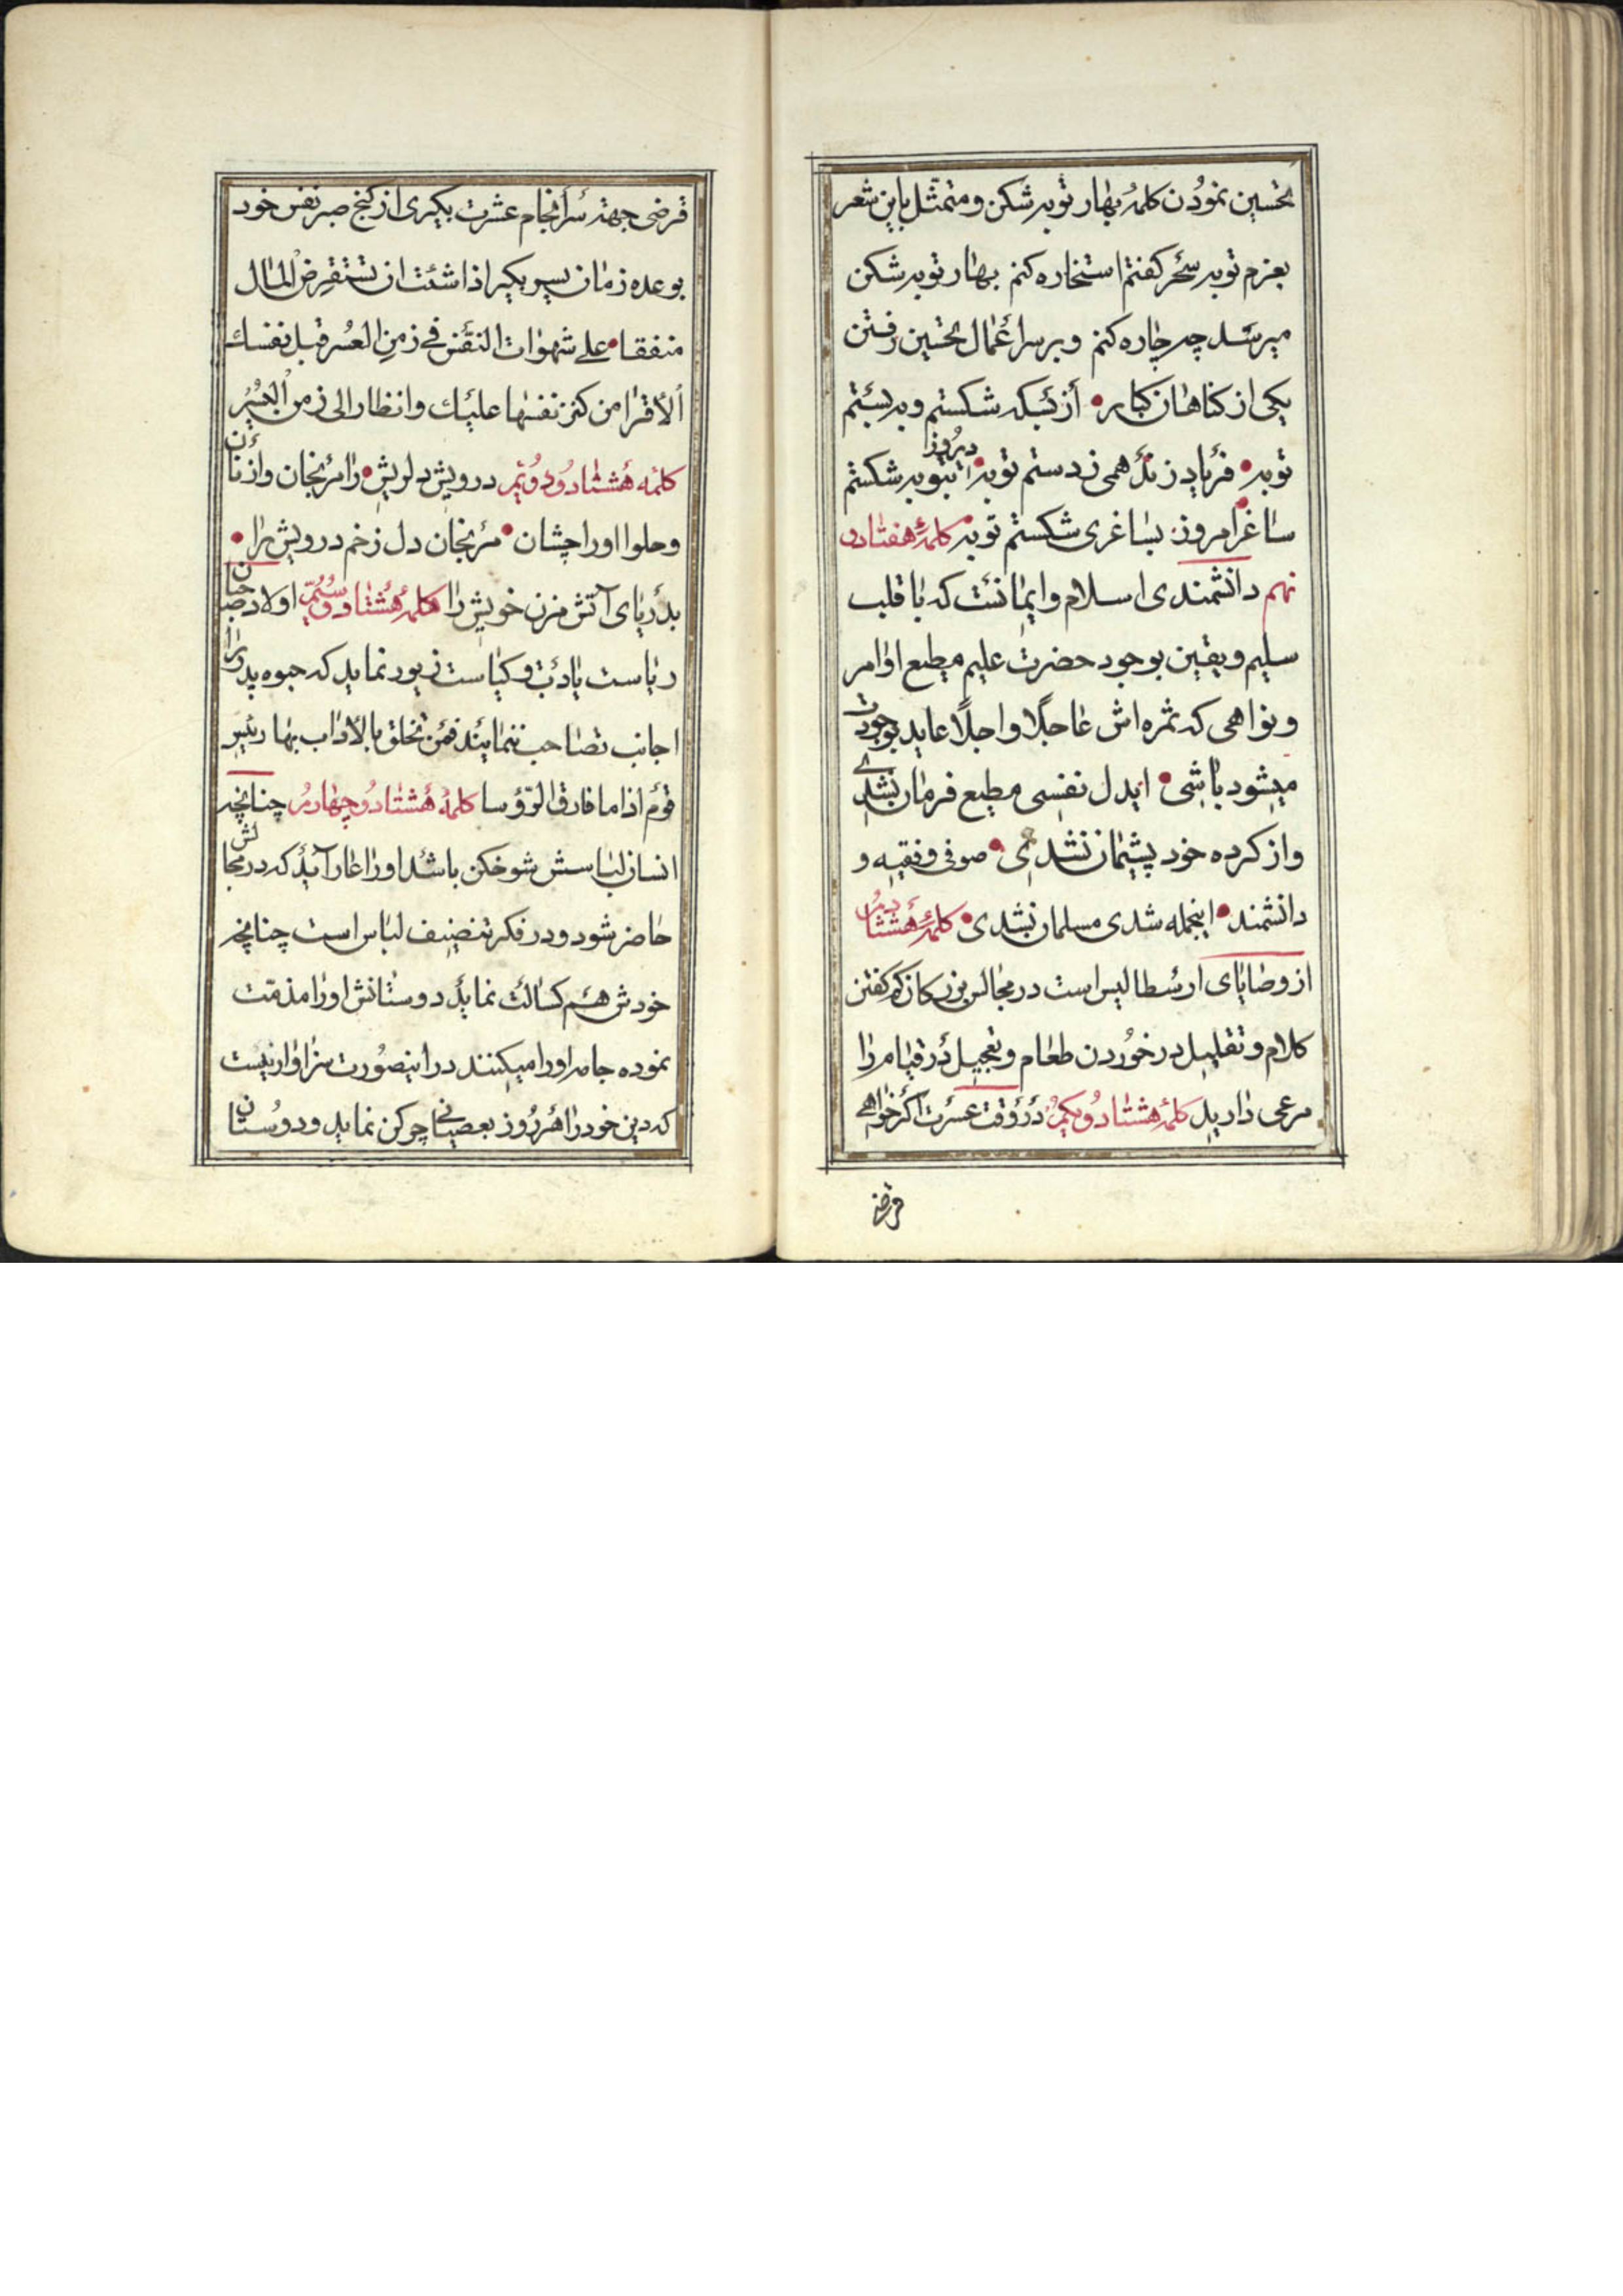 تحسین نمودن کلمهٔ بهار توبه شکن و متمثل باین شعر
بعزم توبه سحر کفتم استخاره کنم بهار توبه شکن
میرسد چه چاره کنم و بر سر اعمال تحسین رفتن
یکی از کناهان کبایر • از بسکه شکستم و به بستم
توبه • فریاد ز نک همی زدستم توبه • دیروز بتوبه شکستم
ساغر • امروز بساغری شکستم توبه • کلمهٔ هفتاد و
نهم دانشمندی اسلام و ایمانت که با قلب
سلیم و یقین بوجود حضرت علیم مطیع اوامر
و نواهی که ثمره اش عاجلا و اجلا عاید بوجودت
میشود باشی • ایدل نفسی مطیع فرمان نشدی
و از کرده خود پشیمان نشدی • صوفی و فقیه و
دانشمند • اینجمله شدی مسلمان نشدی • کلمهٔ هشتادم
از وصایای ارسطالیس است در مجالس بزرکان کم کفتن
کلام و تقلیل در خوردن طعام و تعجیل در قیام را
مرعی دارید کلمهٔ هشتاد و یکم در وقت عسرت اکر خواهی
قرضی
قرضی جهته سرانجام عشرت بکیری از کنج صبر نفس خود
بوعده زمان یسیر بکیر اذا شئت ان تستقرض المال
منفقا • علی شهوات النفس فی زمن العسر قبل نفسك
الاقرا من کنز نفسها علیك و انظارا الی زمن الیسر
کلمه هشتاد و دویم درویش دلریش • را مرنجان و از نان
و حلوا اورا چشان • مرنجان دل زخم درویش را •
بدریای آتش مزن خویش را کلمهٔ هشتاد و سیم اولاد صاحبان
ریاست یا دئت و کیاست زیور نماید که جبوه پدر را
اجانب تصاحب ننمایند فمن تخلق بالاداب بها رئیس
قوم اذا ما فارق الرؤسا کلمهٔ هشتاد و چهارم چنانچه
انسان لباسش شوخکن باشد اورا عار آید که در مجالس
حاضر شود و در فکر تنضیف لباس است چنانچه
خودش هم کسالت نماید دوستانش اورا مذمت
نموده جامه اورا میکنند در اینصورت سزاوار نیست
که دین خود را هر روز بعصیانی چرکن نماید و دوستان